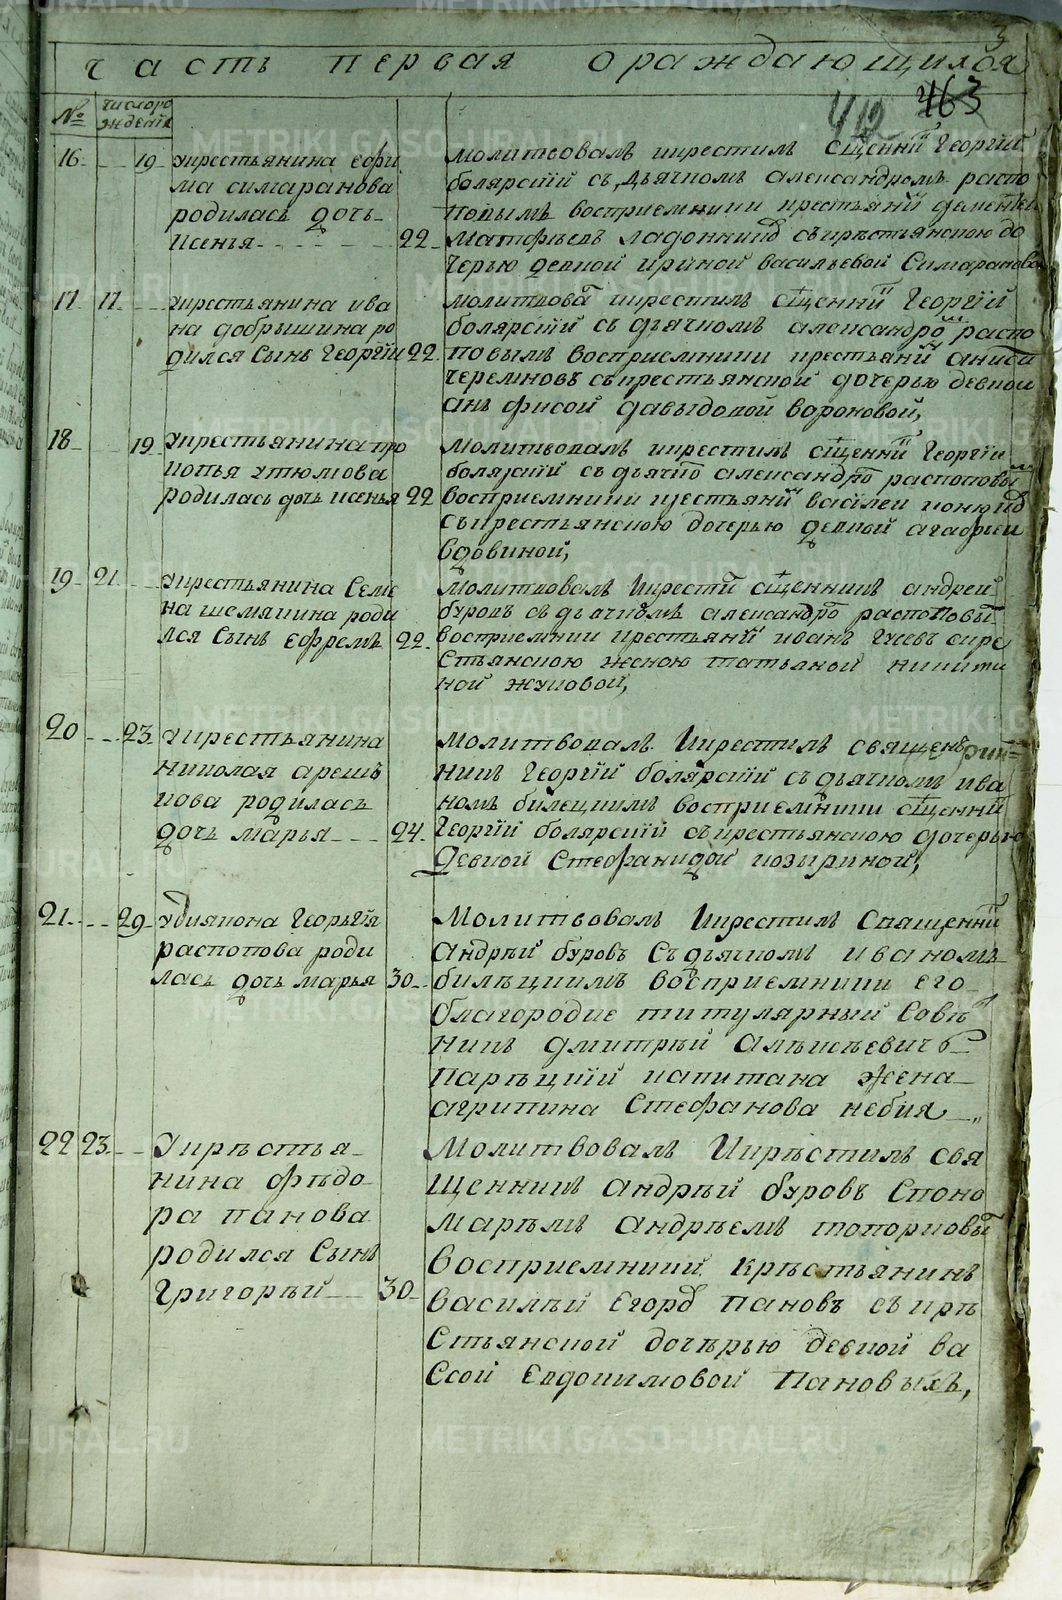 часть первая ораждающихся
3
412 463
№ число рождения
16 19 укрестьянина ефи
ма симаранова
родилась дочь
ксенья 22
молитвовалъ икрестилъ сщенникъ Георгий
болярский съ дьячкомъ александромъ распо
повымъ восприемники крестьянинъ
Матфеевъ съкрестьянскою до
черью девкой ириной васильевой Симарановой
17 17 укрестьянина ива
на добрышина ро
дился сынъ Георгий 22
молитвовалъ икрестилъ сщенникъ Георгий
болярский съ дьячкомъ александромъ распо
повымъ восприемники крестьянинъ
черемновъ съкрестьянской дочерью девкой
анъфисой давыдовой вороновой,
18 19 укрестьянина про
копья утюмова
родилась дочь ксенья 22
молитвовалъ икрестилъ сщенникъ Георгий
болярский съ дьячко александро распоповы
восприемники кестьянинъ василеи
съкрестьянскою дочерью девкой агафьеи
вдовиной,
19 21 укрестьянина Семе
на шемякина роди
лся сынъ ефремъ 22
молитвовалъ икрести сщенникъ андреи
буровъ съдьячкомъ александро распоповы
восприемники крестьянинъ иванъ гусевъ скре
стьянскою женкою татьяной никити
ной жуковой,
20 23 укрестьянина
николая
кова родилась
дочь марья 24
молитвовалъ икрестилъ священъ
никъ Георгий болярский съдьячкомъ ива
номъ билецкимъ восприемники сщенникъ
Георгий болярский съкрестьянскою дочерью
девкой Стефанидой козыриной,
21 29 удиякона Георьгия
распопова роди
лась дочь марья 30
Молитвовалъ икрестилъ Священникъ
Андрѣй буровъ Съдьячкомъ иваномъ
билѣцкимъ восприемники его
благородие титулярный Совѣт
никъ дмитрѣй Алѣксѣевичь
капитана жена
агрипина Стефанова
22 23 Укрѣстья
нина фѣдо
ра панова
родился Сынъ
Григорѣй 30
Молитвовалъ Икрѣстилъ свя
щенникъ андрѣй буровъ Споно
марѣмъ андрѣемъ топорковы
восприемники крѣстьянинъ
василѣй Егоро пановъ съкрѣ
стьянской дочѣрью девкой ва
ссой Евдокимовой Пановыхъ,